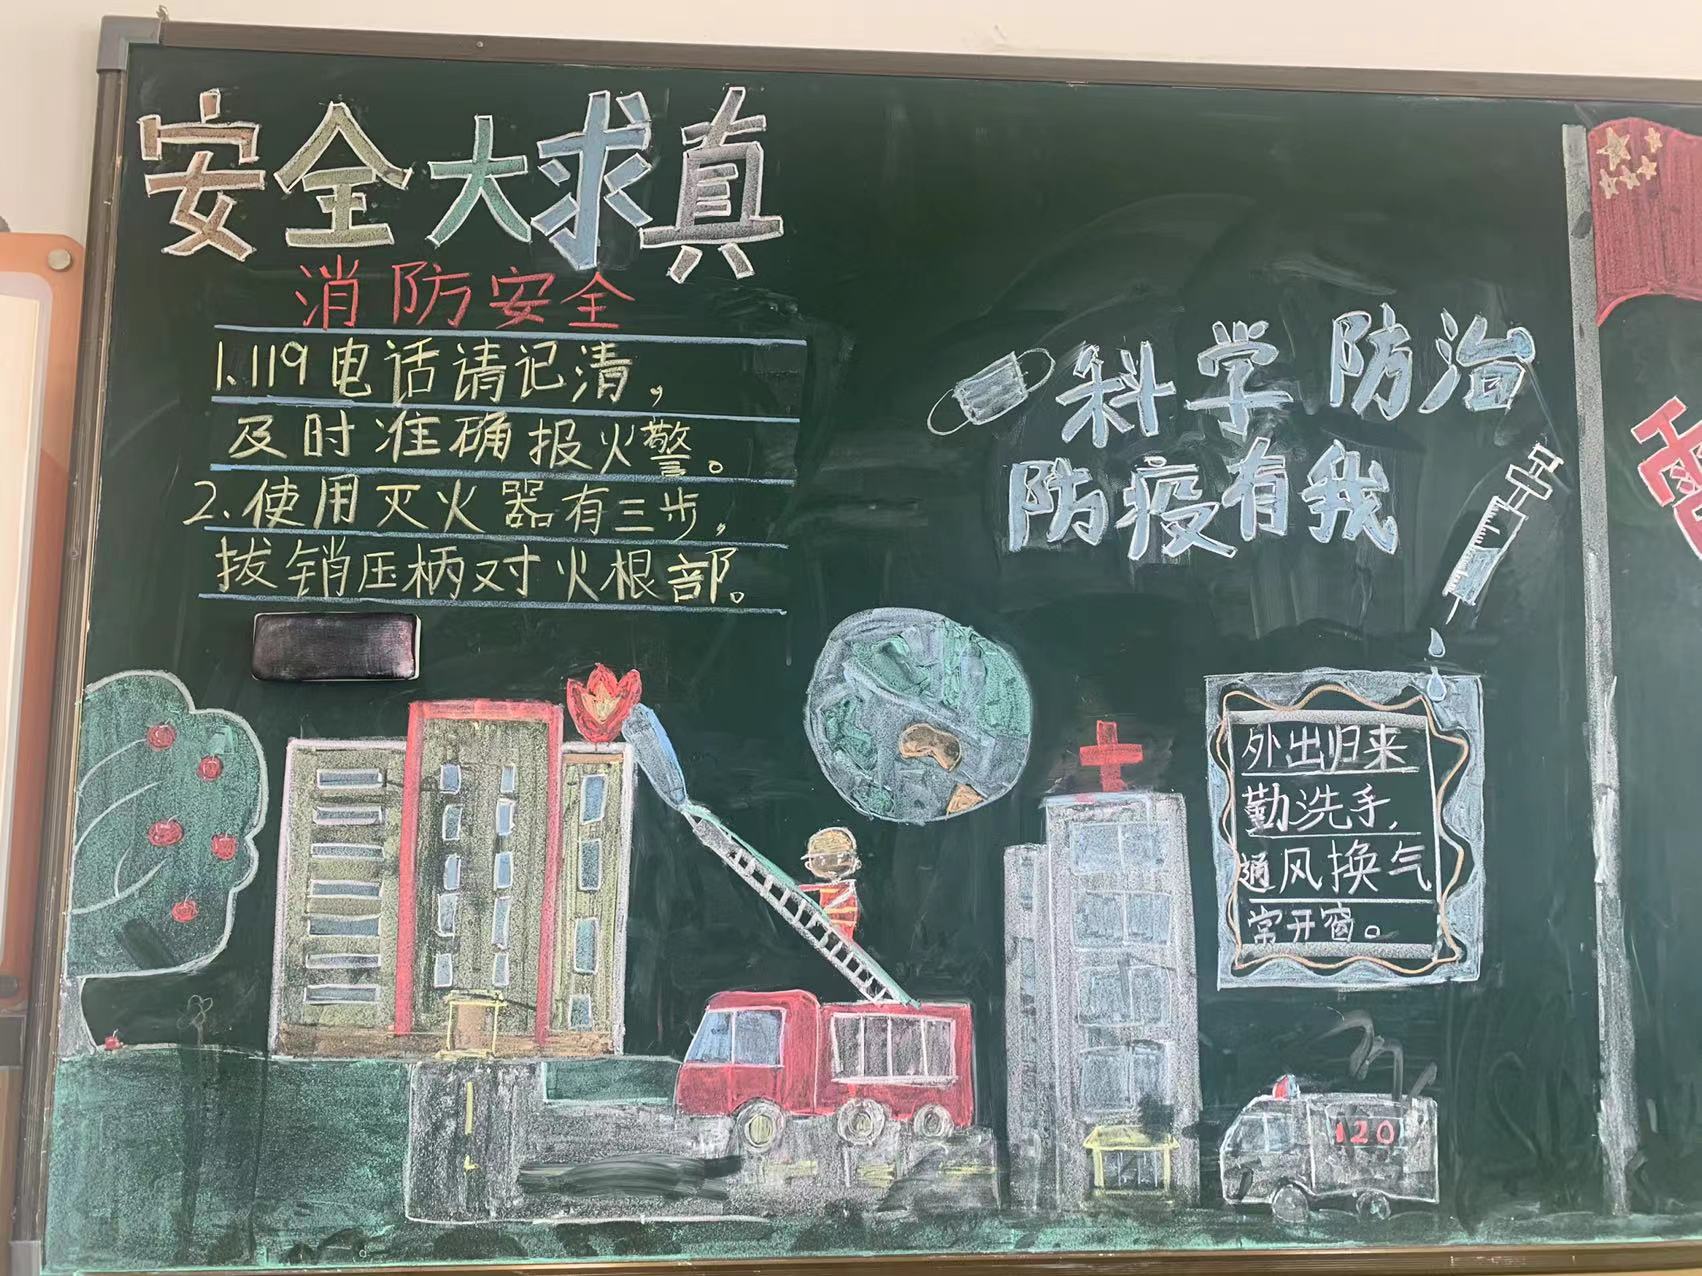 安全大求真
消防安全
1.119电话请记清，
及时准确报火警。
2.使用灭火器有三步，
拔销压柄对火根部。
科学防治
防疫有我
外出归来
勤洗手，
通风换气
常开窗。
120